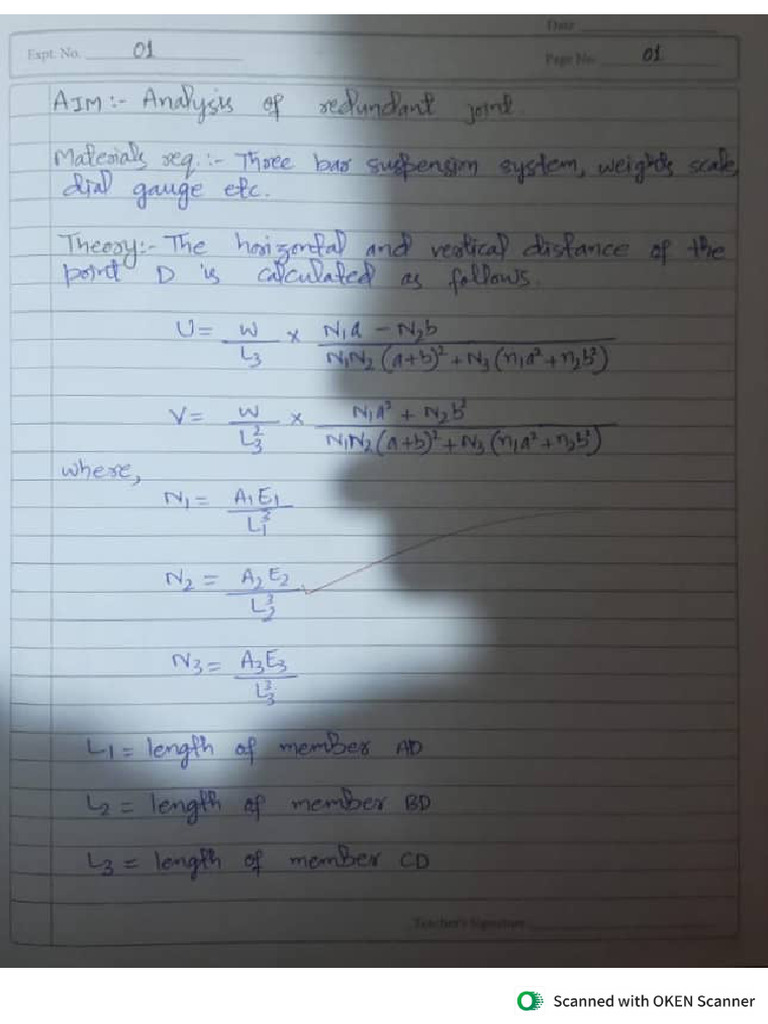 Date
Expt. No. 01
Page No. 01
AIM :- Analysis of redundant joint.
Materials req. :- Three bar suspension system, weights scale,
dial gauge etc.
Theory:- The horizontal and vertical distance of the
point D is calculated as follows.
U = W/L₃ × (N₁a - N₂b)/(N₁N₂(a+b)² + N₃(n₁a² + n₂b²))
V = W/L₃² × (N₁a² + N₂b²)/(N₁N₂(a+b)² + N₃(n₁a² + n₂b²))
where,
N₁ = A₁E₁/L₁³
N₂ = A₂E₂/L₂³
N₃ = A₃E₃/L₃³
L₁ = length of member AD
L₂ = length of member BD
L₃ = length of member CD
Teacher's Signature
Scanned with OKEN Scanner